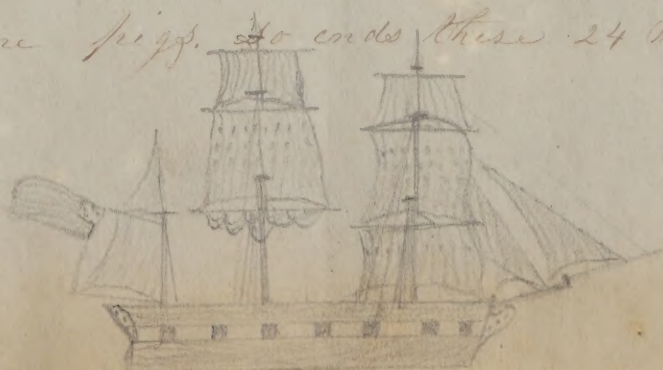 pigs. So ends these 24